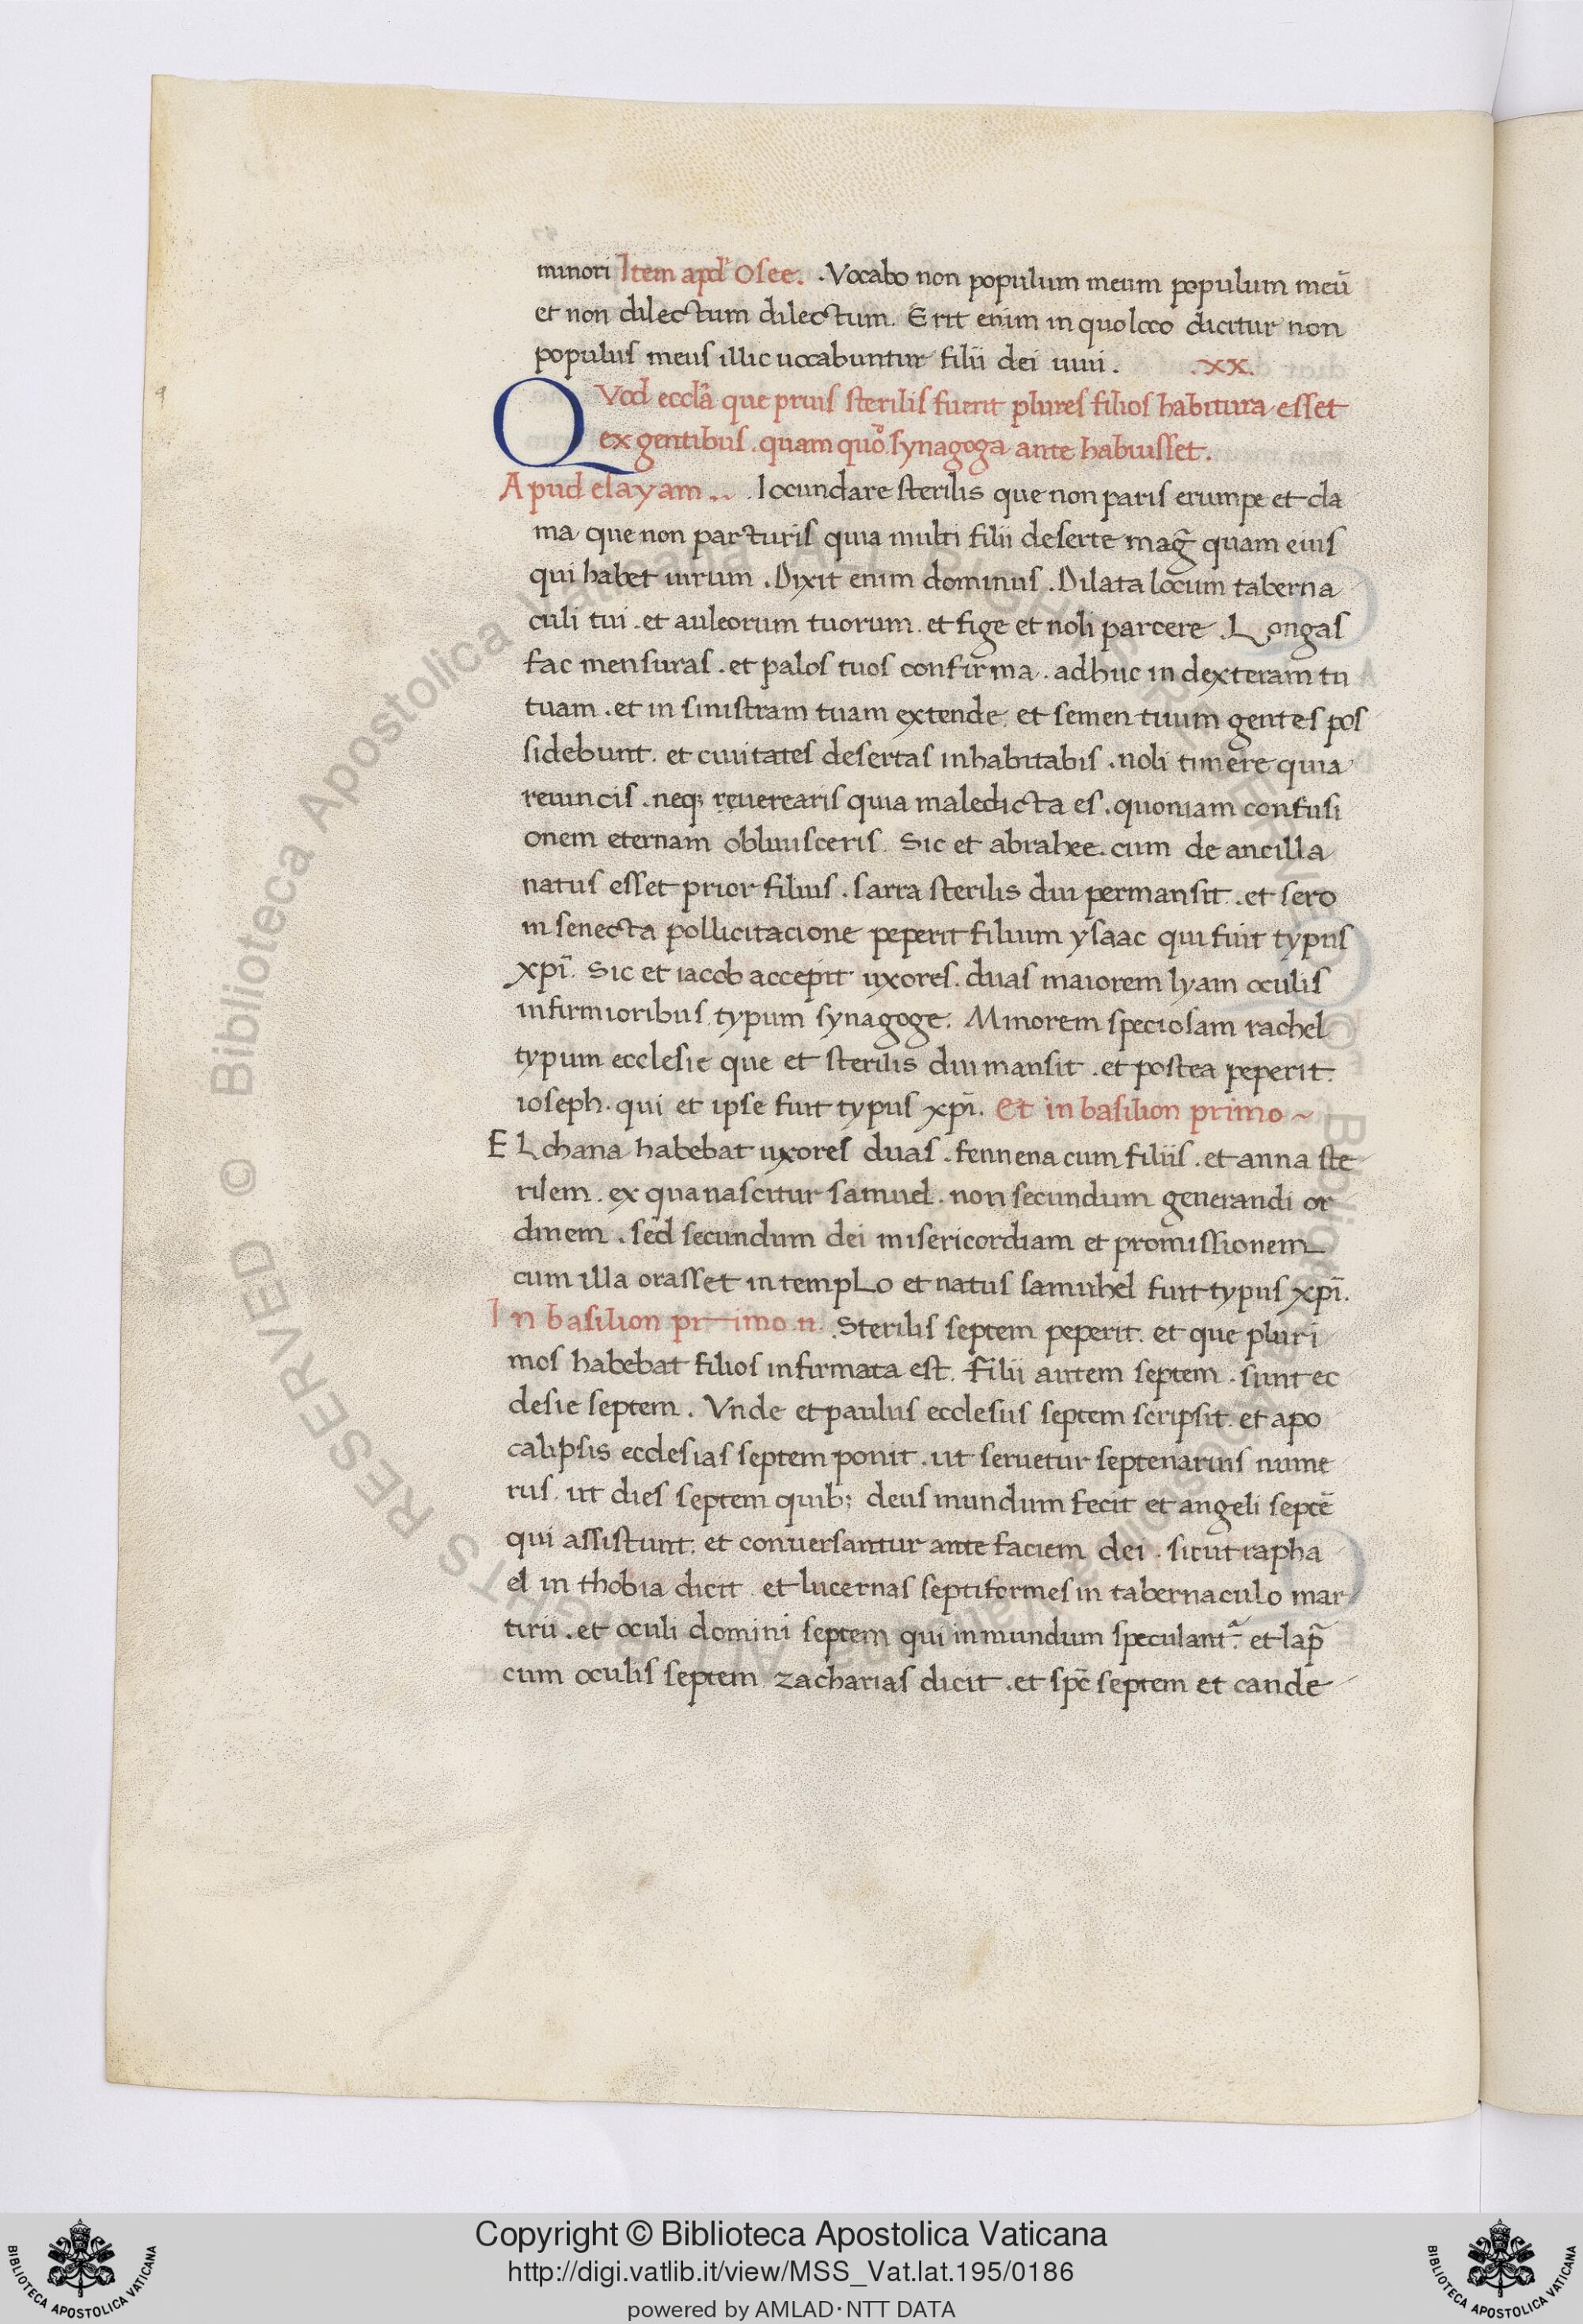 minori Item apd' Osee. .Vocabo non populum meum populum meū
et non dilectum dilectum. Erit enim in quo loco dicitur non
populus meus illic uocabuntur filii dei uiui. .xx.
QVod eccl̄a que prius sterilis fuerit plures filios habitura esset
ex gentibus. quam quō synagoga ante habuisset.
Apud esayam .. .Iocundare sterilis que non paris erumpe et cla
ma que non parturis quia multi filii deserte mag̃ quam eius
qui habet uirum .Dixit enim dominus .Dilata locum taberna
culi tui .et auleorum tuorum. et fige et noli parcere .Longas
fac mensuras .et palos tuos confirma .adhuc in dexteram tu
tuam .et in sinistram tuam extende. et semen tuum gentes pos
sidebunt. et ciuitates desertas inhabitabis .noli timere quia
reuincis .neq; reuerearis quia maledicta es .quoniam confusi
onem eternam obliuisceris. Sic et abrahee. cum de ancilla
natus esset prior filius .sarra sterilis diu permansit .et sero
in senecta pollicitacione peperit filium ysaac qui fuit typus
xpī. Sic et iacob accepit uxores. duas maiorem lyam oculis
infirmioribus typum synagoge. Minorem speciosam rachel
typum ecclesie que et sterilis diu mansit .et postea peperit.
ioseph. qui et ipse fuit typus xpī. Et in basilion primo ~
ELchana habebat uxores duas .fennena cum filiis .et anna ste
rilem .ex qua nascitur samuel .non secundum generandi or
dinem .sed secundum dei misericordiam et promissionem
cum illa orasset in templo et natus samuhel fuit typus xpī.
In basilion primo .n. .Sterilis septem peperit. et que pluri
mos habebat filios infirmata est. Filii autem septem .sunt ec
clesie septem. Vnde et paulus ecclesiis septem scripsit. et apo
calipsis ecclesias septem ponit .ut seruetur septenarius nume
rus. ut dies septem quib; deus mundum fecit et angeli septē
qui assistunt. et conuersantur ante faciem dei .sicut rapha
el in thobia dicit et lucernas septiformes in tabernaculo mar
tirii .et oculi domini septem qui in mundum speculant᷑. et lap̃
cum oculis septem zacharias dicit .et spc̄ septem et cande
© Biblioteca Apostolica Vaticana ALL RIGHTS RESERVED
Copyright © Biblioteca Apostolica Vaticana
http://digi.vatlib.it/view/MSS_Vat.lat.195/0186
powered by AMLAD·NTT DATA
BIBLIOTECA APOSTOLICA VATICANA
BIBLIOTECA APOSTOLICA VATICANA